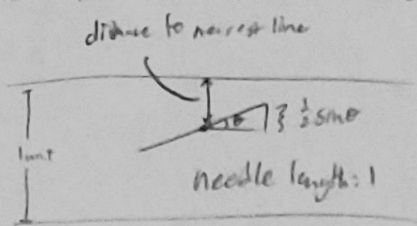 distance to nearest line
θ
½ sinθ
1 unit
needle length: 1